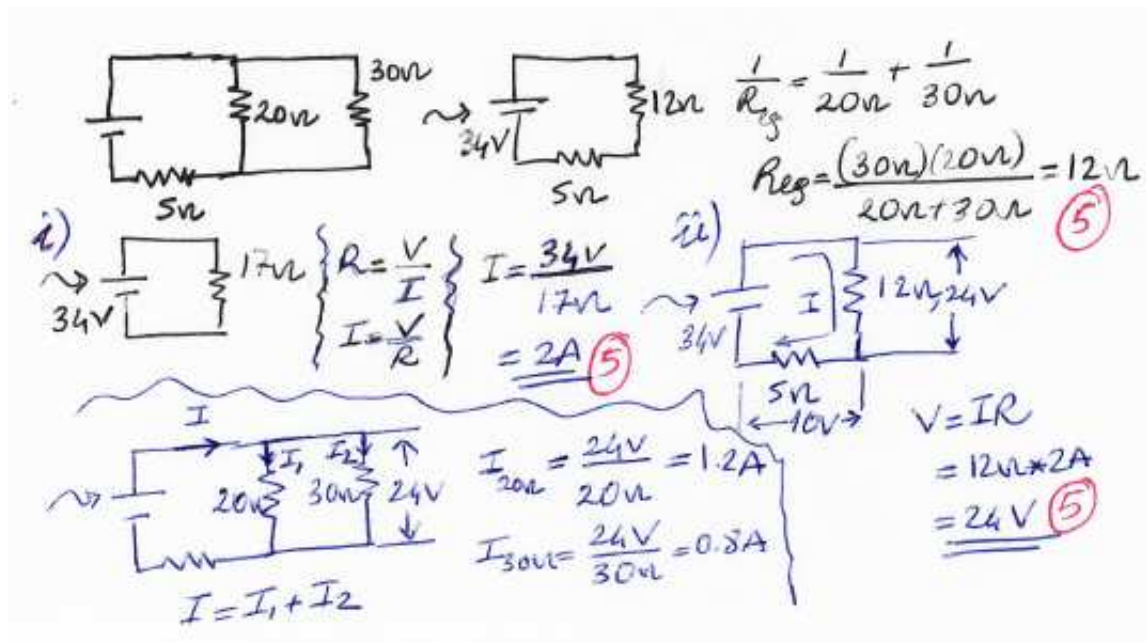 30Ω
20Ω
5Ω
34V
12Ω
5Ω
1/Req = 1/20Ω + 1/30Ω
Req = (30Ω)(20Ω)/20Ω+30Ω = 12Ω
5
i)
34V
17Ω
R = V/I
I = V/R
I = 34V/17Ω
= 2A
5
ii)
34V
I
12Ω
24V
5Ω
10V
V = IR
= 12Ω*2A
= 24V
5
I
I₁
I₂
20Ω
30Ω
24V
I = I₁ + I₂
I20Ω = 24V/20Ω = 1.2A
I30Ω = 24V/30Ω = 0.8A